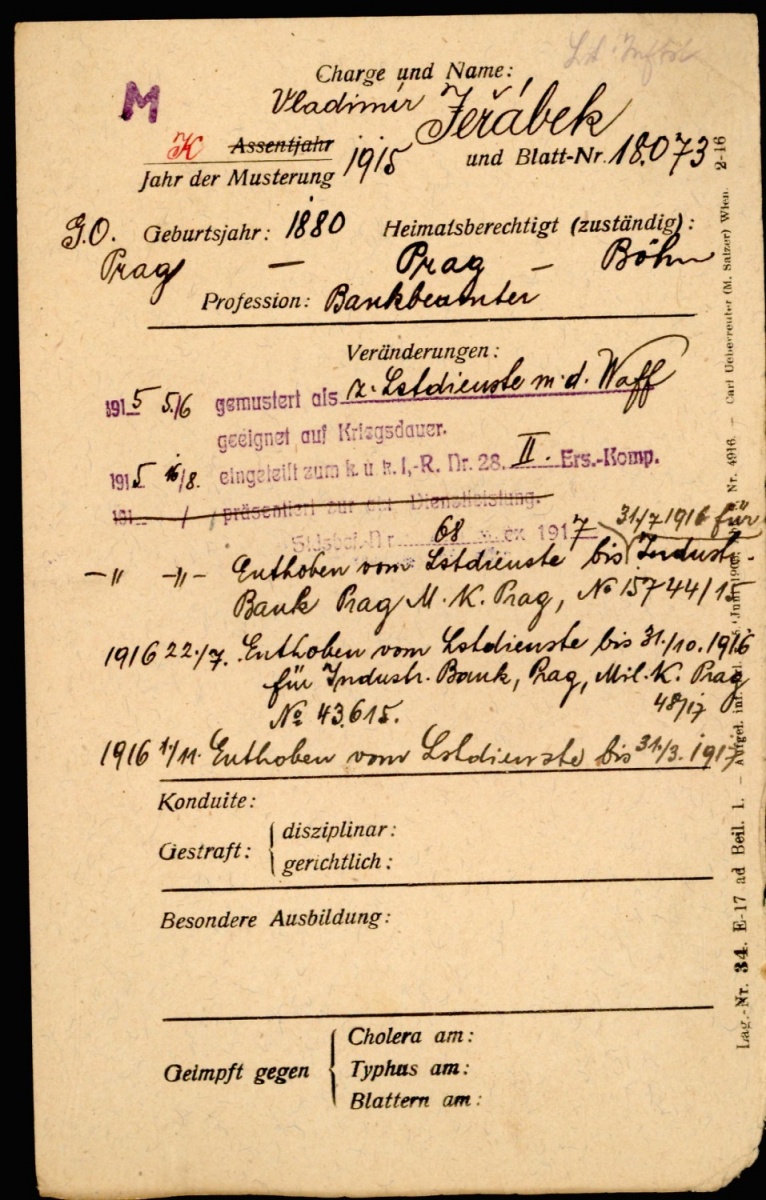 Charge und Name:
M
Vladimír Jeřábek
K Assentjahr
Jahr der Musterung 1915 und Blatt-Nr. 18.073
G.O. Geburtsjahr: 1880 Heimatsberechtigt (zuständig):
Prag — Prag — Böhm
Profession: Bankbeamter
Veränderungen:
1915 5./6 gemustert als z. Lstdienste m. d. Waff
geeignet auf Kriegsdauer.
1915 16/8. eingeteilt zum k. u. k. I.-R. Nr. 28. II. Ers.-Komp.
191 / präsentiert zur akt. Dienstleistung.
68 ex 1917
31./7 1916 für
—"— —"— Enthoben vom Lstdienste bis Industr.
Bank Prag M. K. Prag, № 15744/15
1916 22./7. Enthoben vom Lstdienste bis 31./10. 1916
für Industr. Bank, Prag, Mil. K. Prag
№ 43.615. 48/17
1916 1/11. Enthoben vom Lstdienste bis 31./3. 1917
Konduite:
Gestraft: disziplinar:
gerichtlich:
Besondere Ausbildung:
Geimpft gegen Cholera am:
Typhus am:
Blattern am:
Lag.-Nr. 34. E-17 ad Beil. 1. — Nr. 4916. — Carl Ueberreuter (M. Salzer) Wien. 2-16